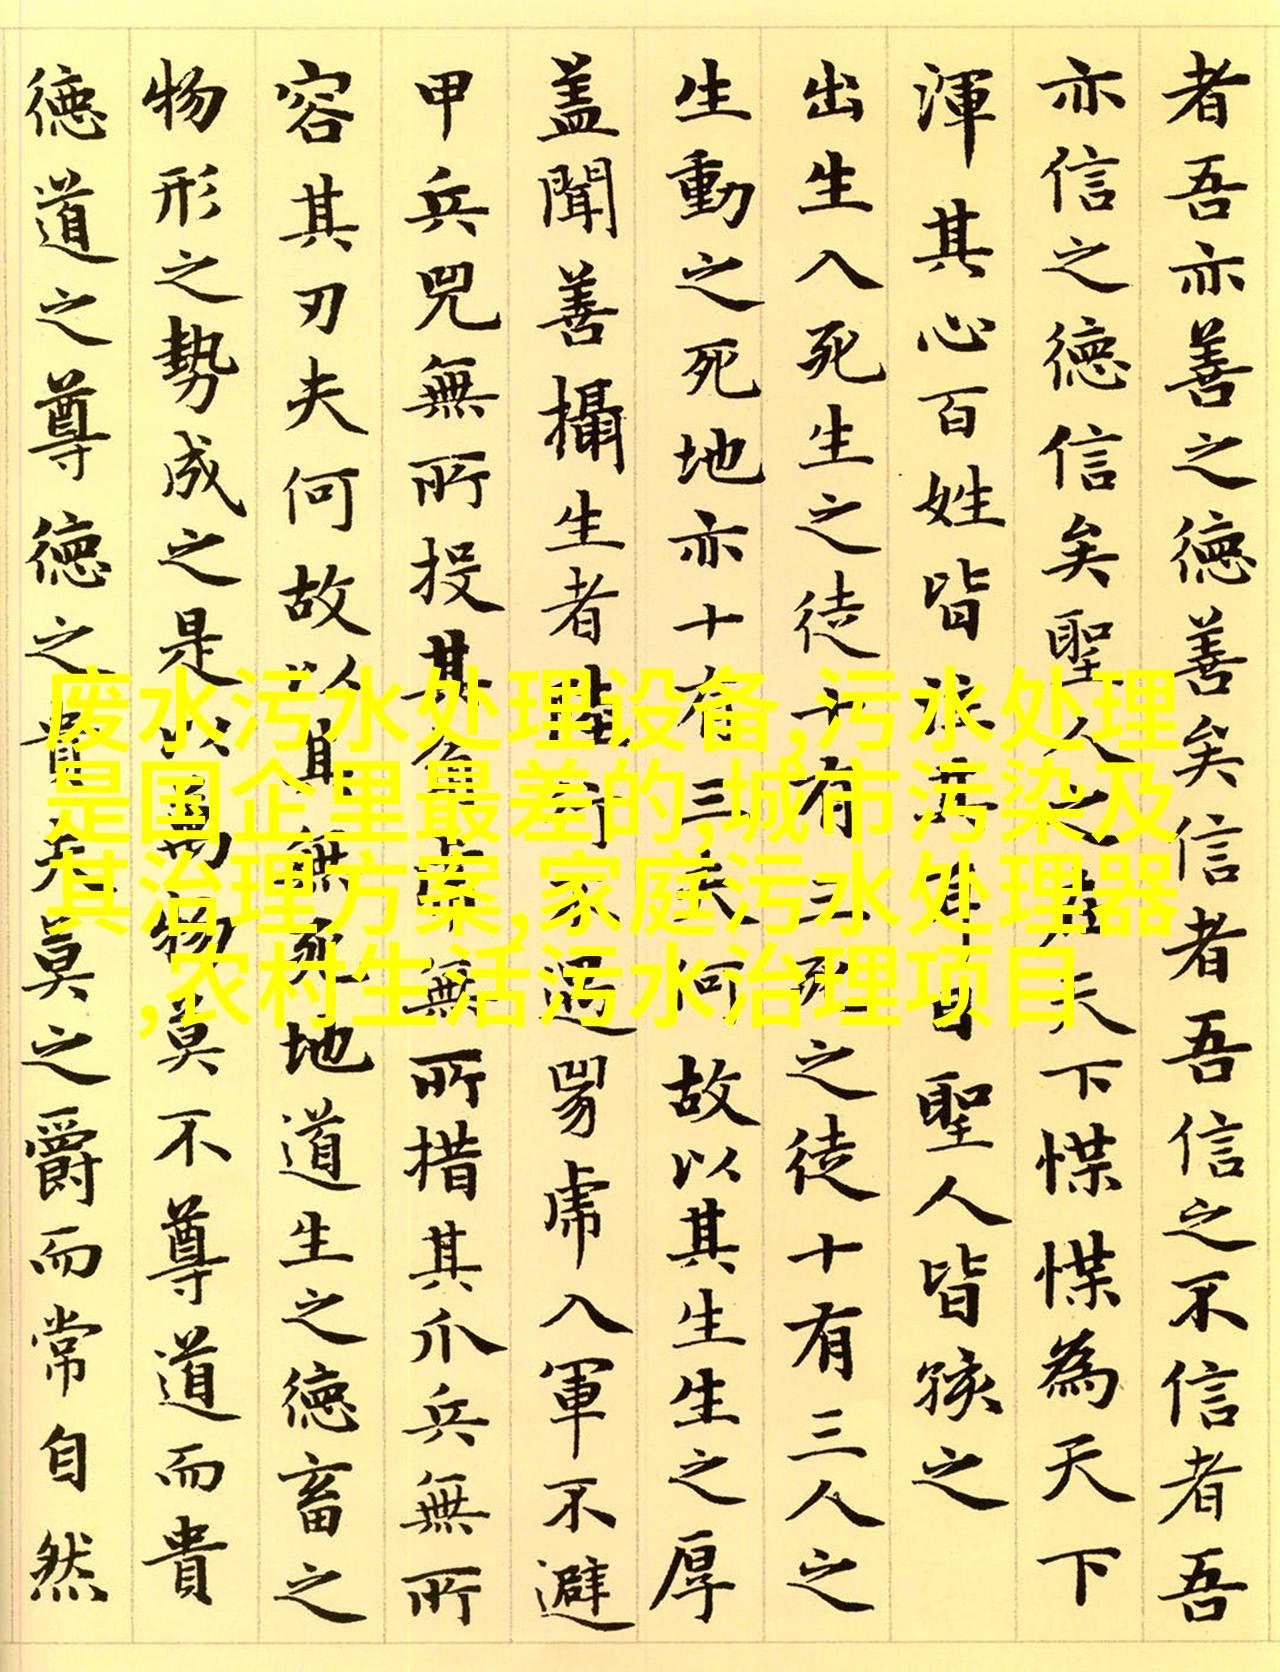 者吾亦善之德善矣信者吾信之不信者吾
亦信之德信矣聖人之在天下惵惵為天下
渾其心百姓皆注其耳目聖人皆孩之
出生入死生之徒十有三死之徒十有三人之
生動之死地亦十有三夫何故以其生生之厚
蓋聞善攝生者陸行不遇兕虎入軍不避
甲兵兕無所投其角虎無所措其爪兵無所
容其刃夫何故以其無死地道生之德畜之
物形之勢成之是以萬物莫不尊道而貴
德道之尊德之貴夫莫之爵而常自然
废水污水处理设备,污水处理
是国企里最差的,城市污染及
其治理方案,家庭污水处理器
,农村生活污水治理项目